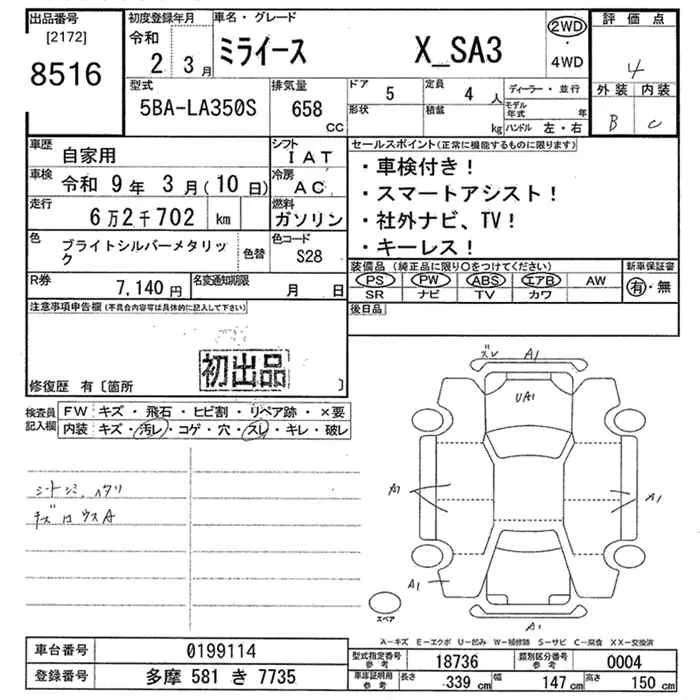 出品番号
[2172]
8516
初度登録年月
令和
2 3月
車名・グレード
ミライース X_SA3
2WD
・
4WD
評価点
4
外装 内装
B C
型式
5BA-LA350S
排気量
658
cc
ドア 5
形状
定員 4 人
積載 kg
ディーラー・並行
モデル年式 年
ハンドル 左・右
車歴 自家用
シフト IAT
車検 令和 9年 3月(10日)
冷房 AC
走行 6万2千702 km
燃料 ガソリン
色 ブライトシルバーメタリック
色替
色コード S28
R券 7,140円
名変通知期限 月 日
セールスポイント(正常に機能するものに限ります)
・車検付き!
・スマートアシスト!
・社外ナビ、TV!
・キーレス!
装備品(純正品に限り○をつけてください)
PS PW ABS エアB AW
SR ナビ TV カワ
新車保証書
有・無
後日品
注意事項申告欄(不具合内容等は具体的に記入して下さい)
初出品
修復歴 有〔箇所 〕
検査員記入欄
FW キズ・飛石・ヒビ割・リペア跡・×要
内装 キズ・汚レ・コゲ・穴・スレ・キレ・破レ
シートシミ、ヘタリ
キズ ウスA
ズレ A1
UA1
A1
A1
A1
A1
スペア
A―キズ E―エクボ U―凹み W―補修跡 S―サビ C―腐食 XX―交換済
車台番号 0199114
登録番号 多摩 581 き 7735
型式指定番号 参考 18736
類別区分番号 参考 0004
車庫証明用 参考 長さ 339cm 幅 147cm 高さ 150cm